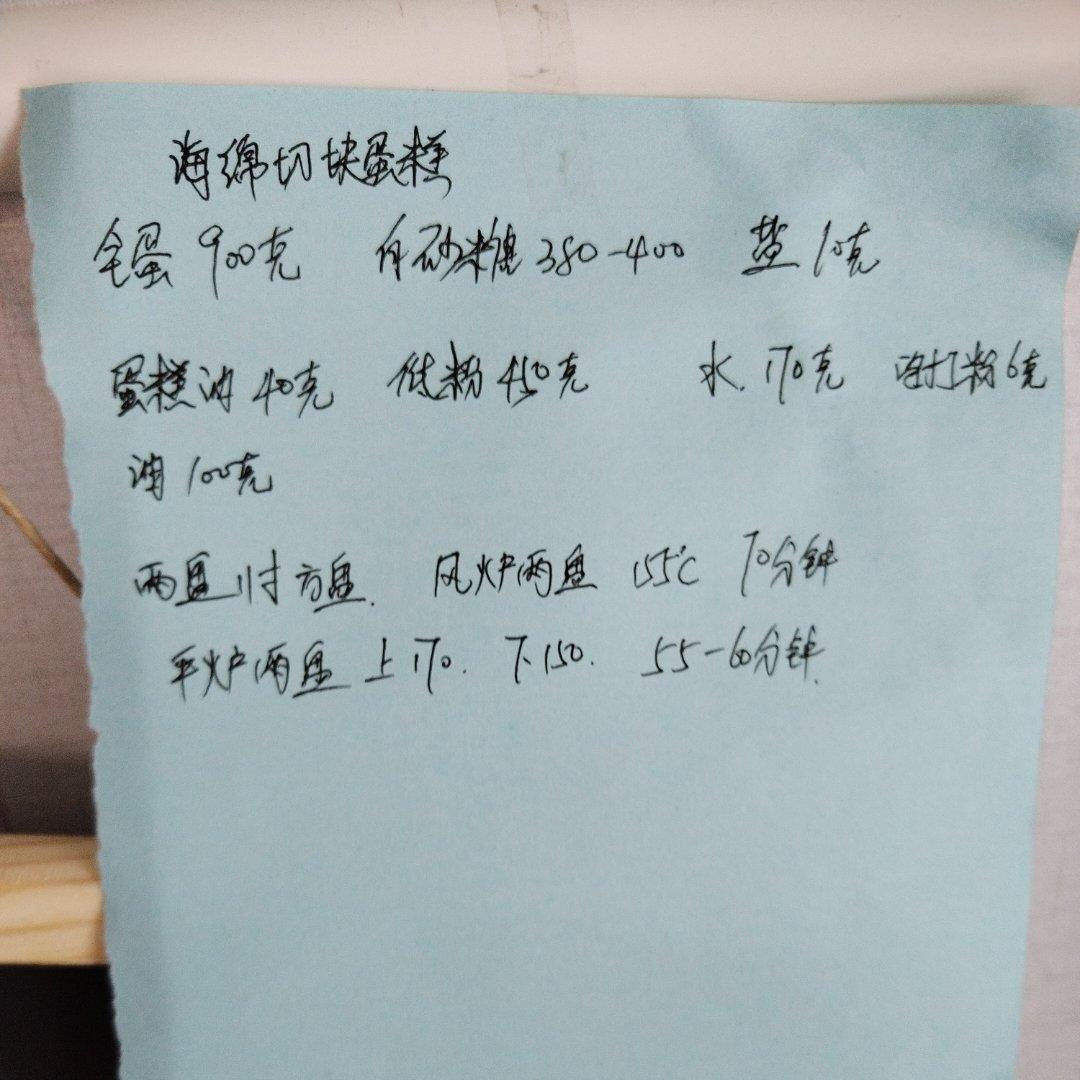 海绵切块蛋糕
全蛋 900克 白砂糖 380-400 盐 10克
蛋糕油 40克 低粉 450克 水. 170克 泡打粉 6克
油 100克
两盘 11寸 方盘. 风炉两盘 155℃ 70分钟
平炉两盘 上170. 下.150. 55-60分钟.